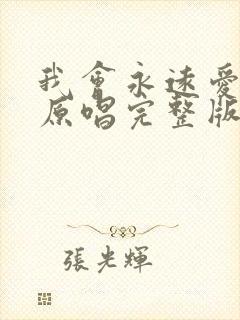 我會永遠愛
原唱完整版
張光輝